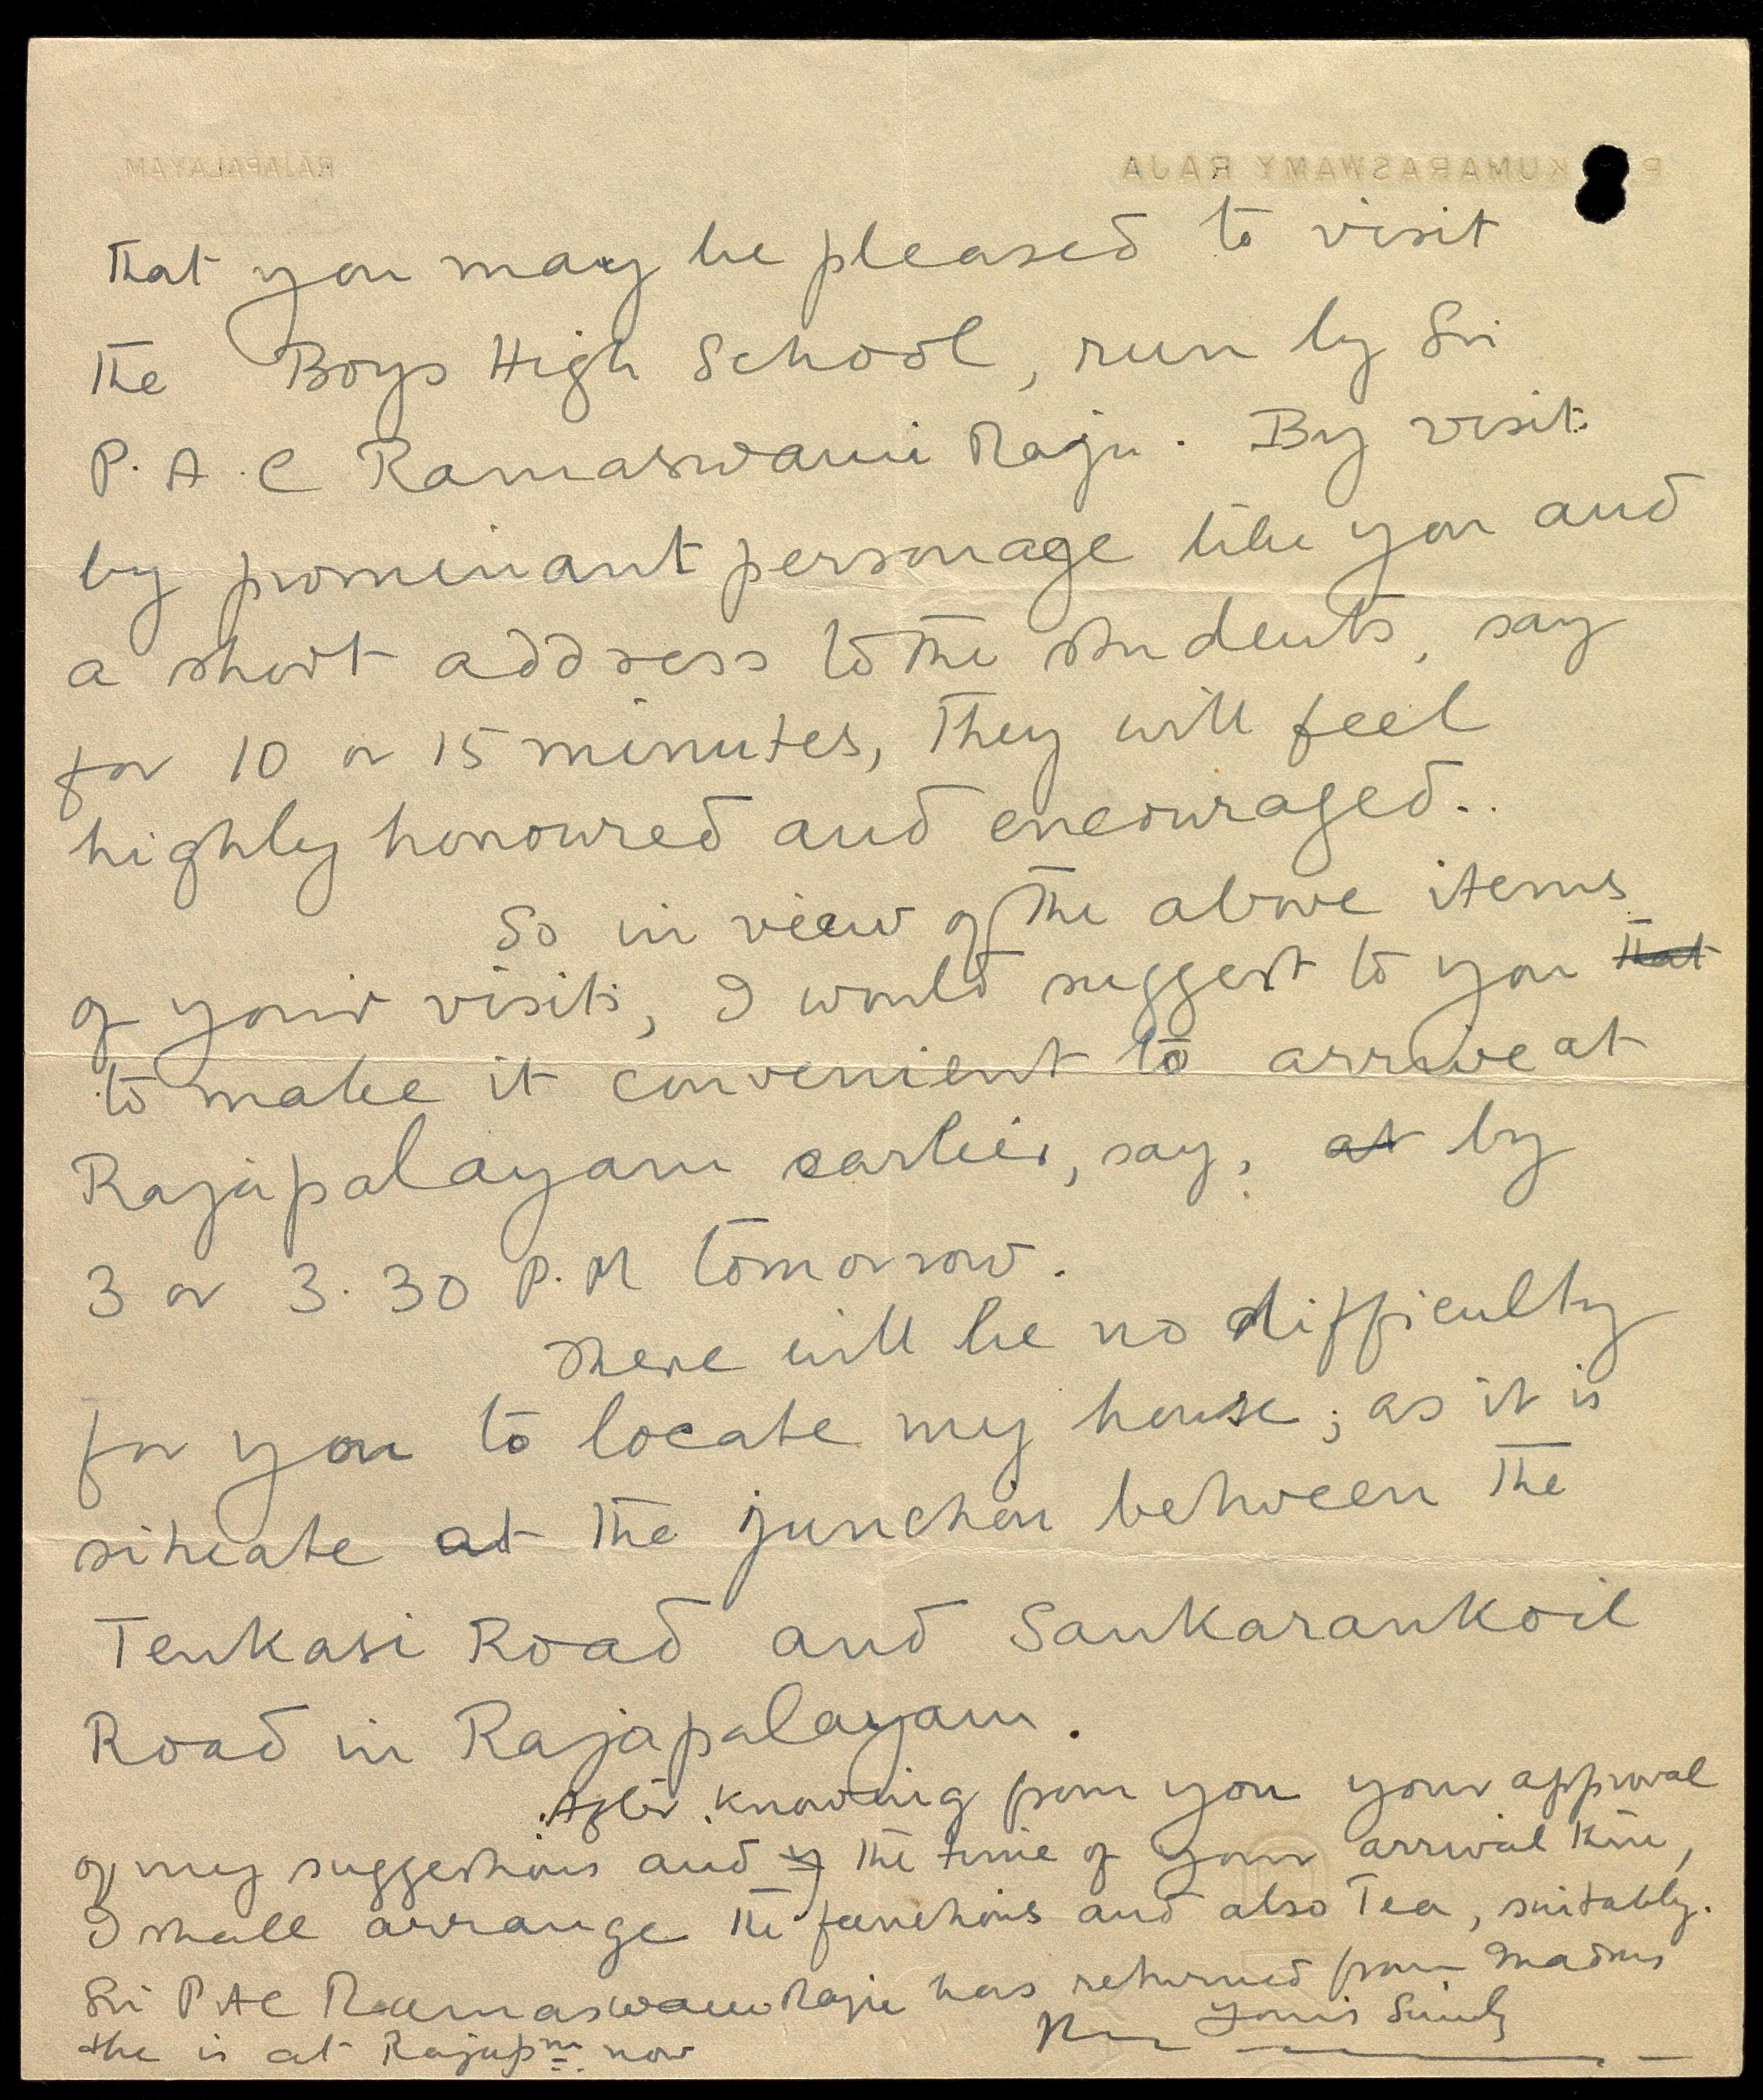 RAJAPALAYAM P. KUMARASWAMY RAJA
that you may be pleased to visit
the Boys High School, run by Sri
P. A. C Ramaswami Raju. By visit
by prominant personage like you and
a short address to the students, say
for 10 or 15 minutes, They will feel
highly honoured and encouraged..
So in view of the above items
of your visits, I would suggest to you that
to make it convenient to arrive at
Rajapalayam earlier, say, at by
3 or 3.30 P.M tomorrow.
There will be no difficulty
for you to locate my house; as it is
situate at the junction between the
Tenkasi Road and Sankarankoil
Road in Rajapalayam.
After knowing from you your approval
of my suggestions and the time of your arrival
I shall arrange the functions and also Tea, suitably.
Sri P A C Ramaswami Raju has returned from Madras
He is at Rajapm now
Yours Sincely